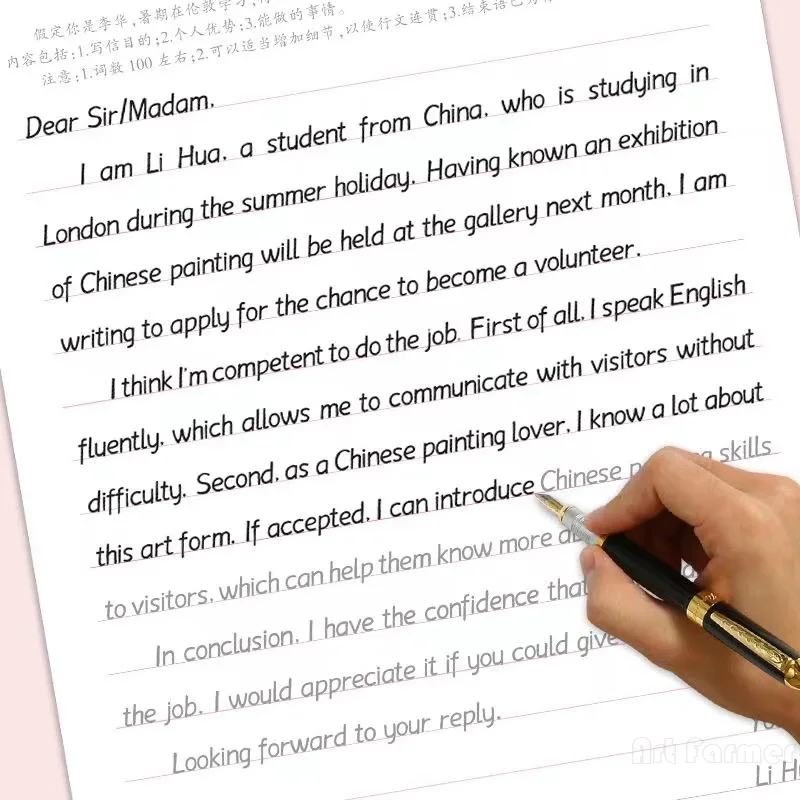 假定你是李华,暑期在伦敦学习,
内容包括:1.写信目的;2.个人优势;3.能做的事情。
注意:1.词数100左右;2.可以适当增加细节,以使行文连贯;3.结束语已为
Dear Sir/Madam,
I am Li Hua, a student from China, who is studying in
London during the summer holiday. Having known an exhibition
of Chinese painting will be held at the gallery next month, I am
writing to apply for the chance to become a volunteer.
I think I'm competent to do the job. First of all, I speak English
fluently, which allows me to communicate with visitors without
difficulty. Second, as a Chinese painting lover, I know a lot about
this art form. If accepted, I can introduce Chinese skills
to visitors, which can help them know more
In conclusion, I have the confidence that
the job. I would appreciate it if you could give
Looking forward to your reply.
Li
Art Farmer